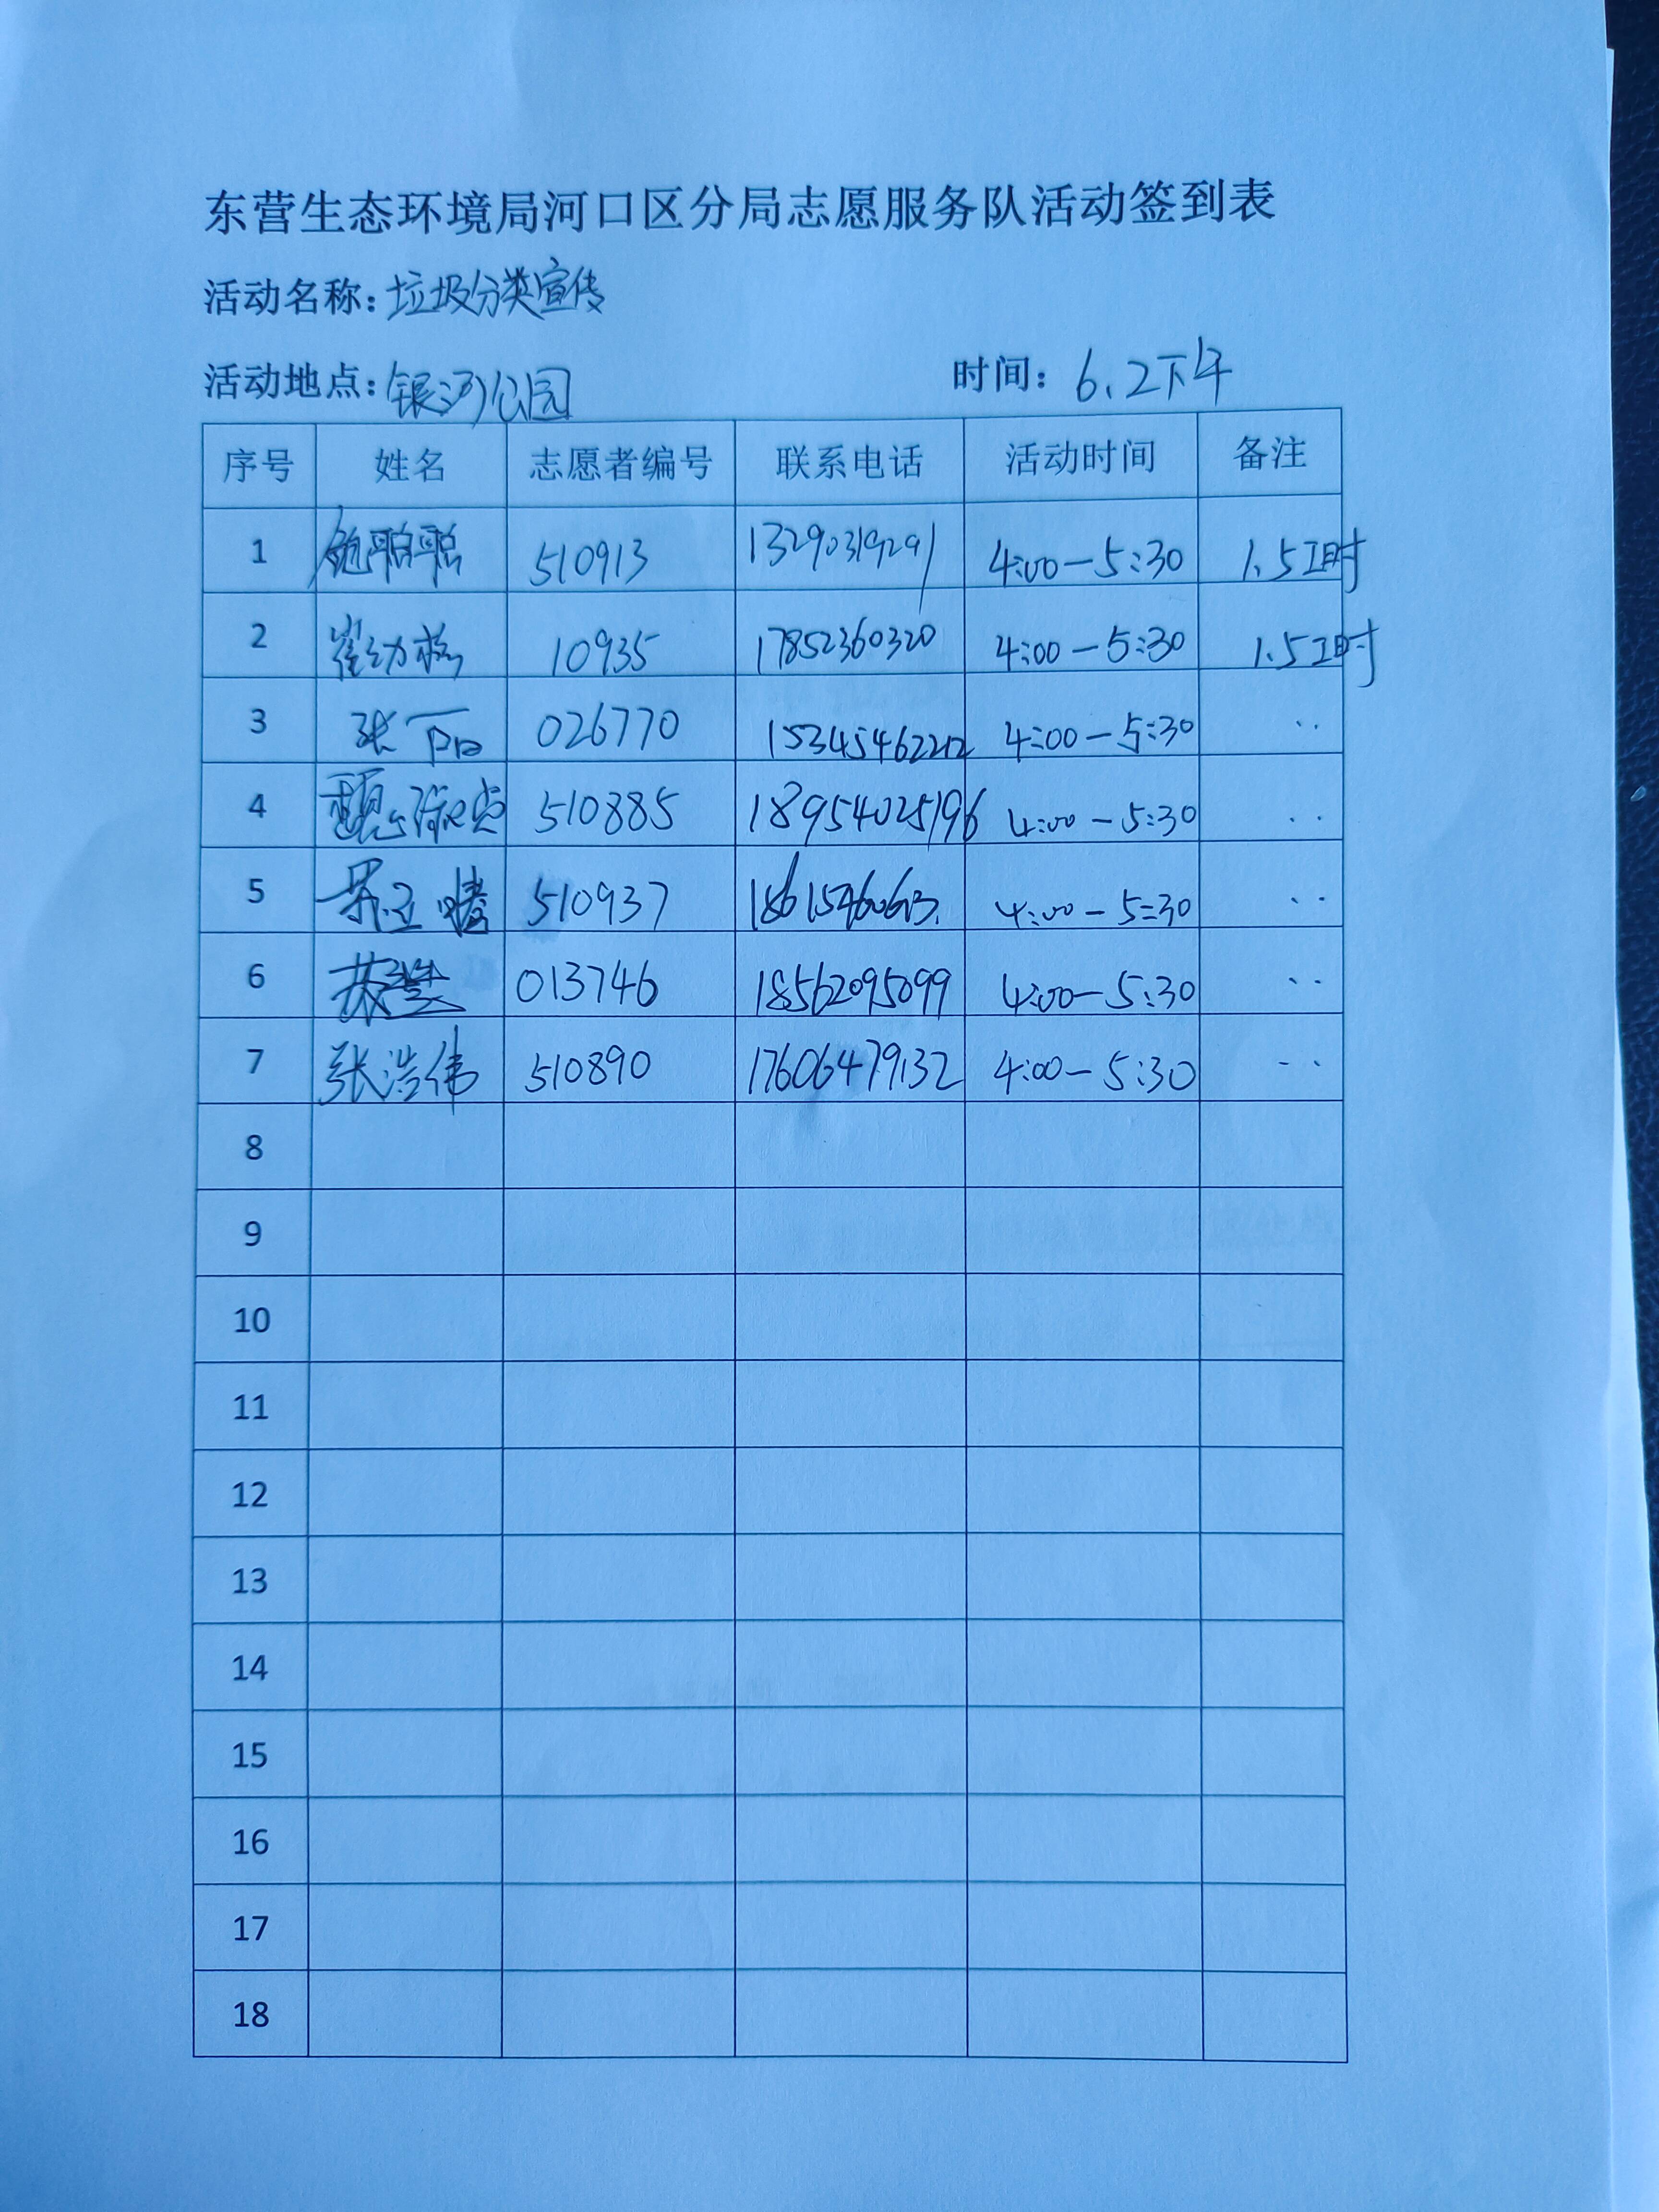 东营生态环境局河口区分局志愿服务队活动签到表
活动名称:垃圾分类宣传
活动地点:银河公园 时间:6.2下午
序号 姓名 志愿者编号 联系电话 活动时间 备注
1 510913 13290319291 4:00-5:30 1.5工时
2 10935 17852360320 4:00-5:30 1.5工时
3 张丽 026770 4:00-5:30 ··
4 510885 18954025196 4:00-5:30 ··
5 510937 4:00-5:30 ··
6 013746 18562095099 4:00-5:30 ··
7 张浩伟 510890 17606479132 4:00-5:30 ··
8
9
10
11
12
13
14
15
16
17
18